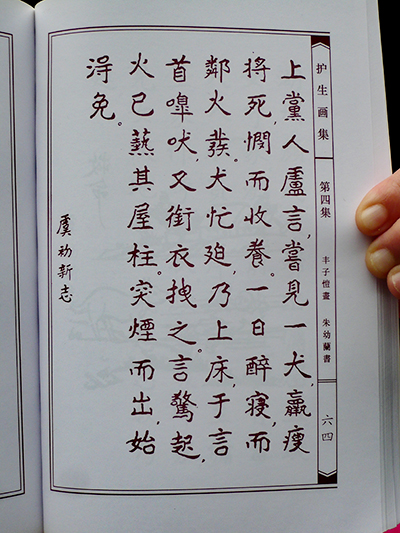 护生画集
第四集
丰子愷畫 朱幼蘭書
六四
上黨人盧言,嘗見一犬,羸瘦
將死,憫而收養。一日醉寢,而
鄰火發。犬忙廹,乃上床,于言
首嘷吠,又銜衣拽之。言驚起,
火已爇其屋柱。突煙而出,始
淂免。
虞初新志